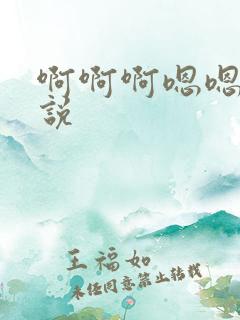 啊啊啊嗯嗯
説
王福如
未经同意禁止转载